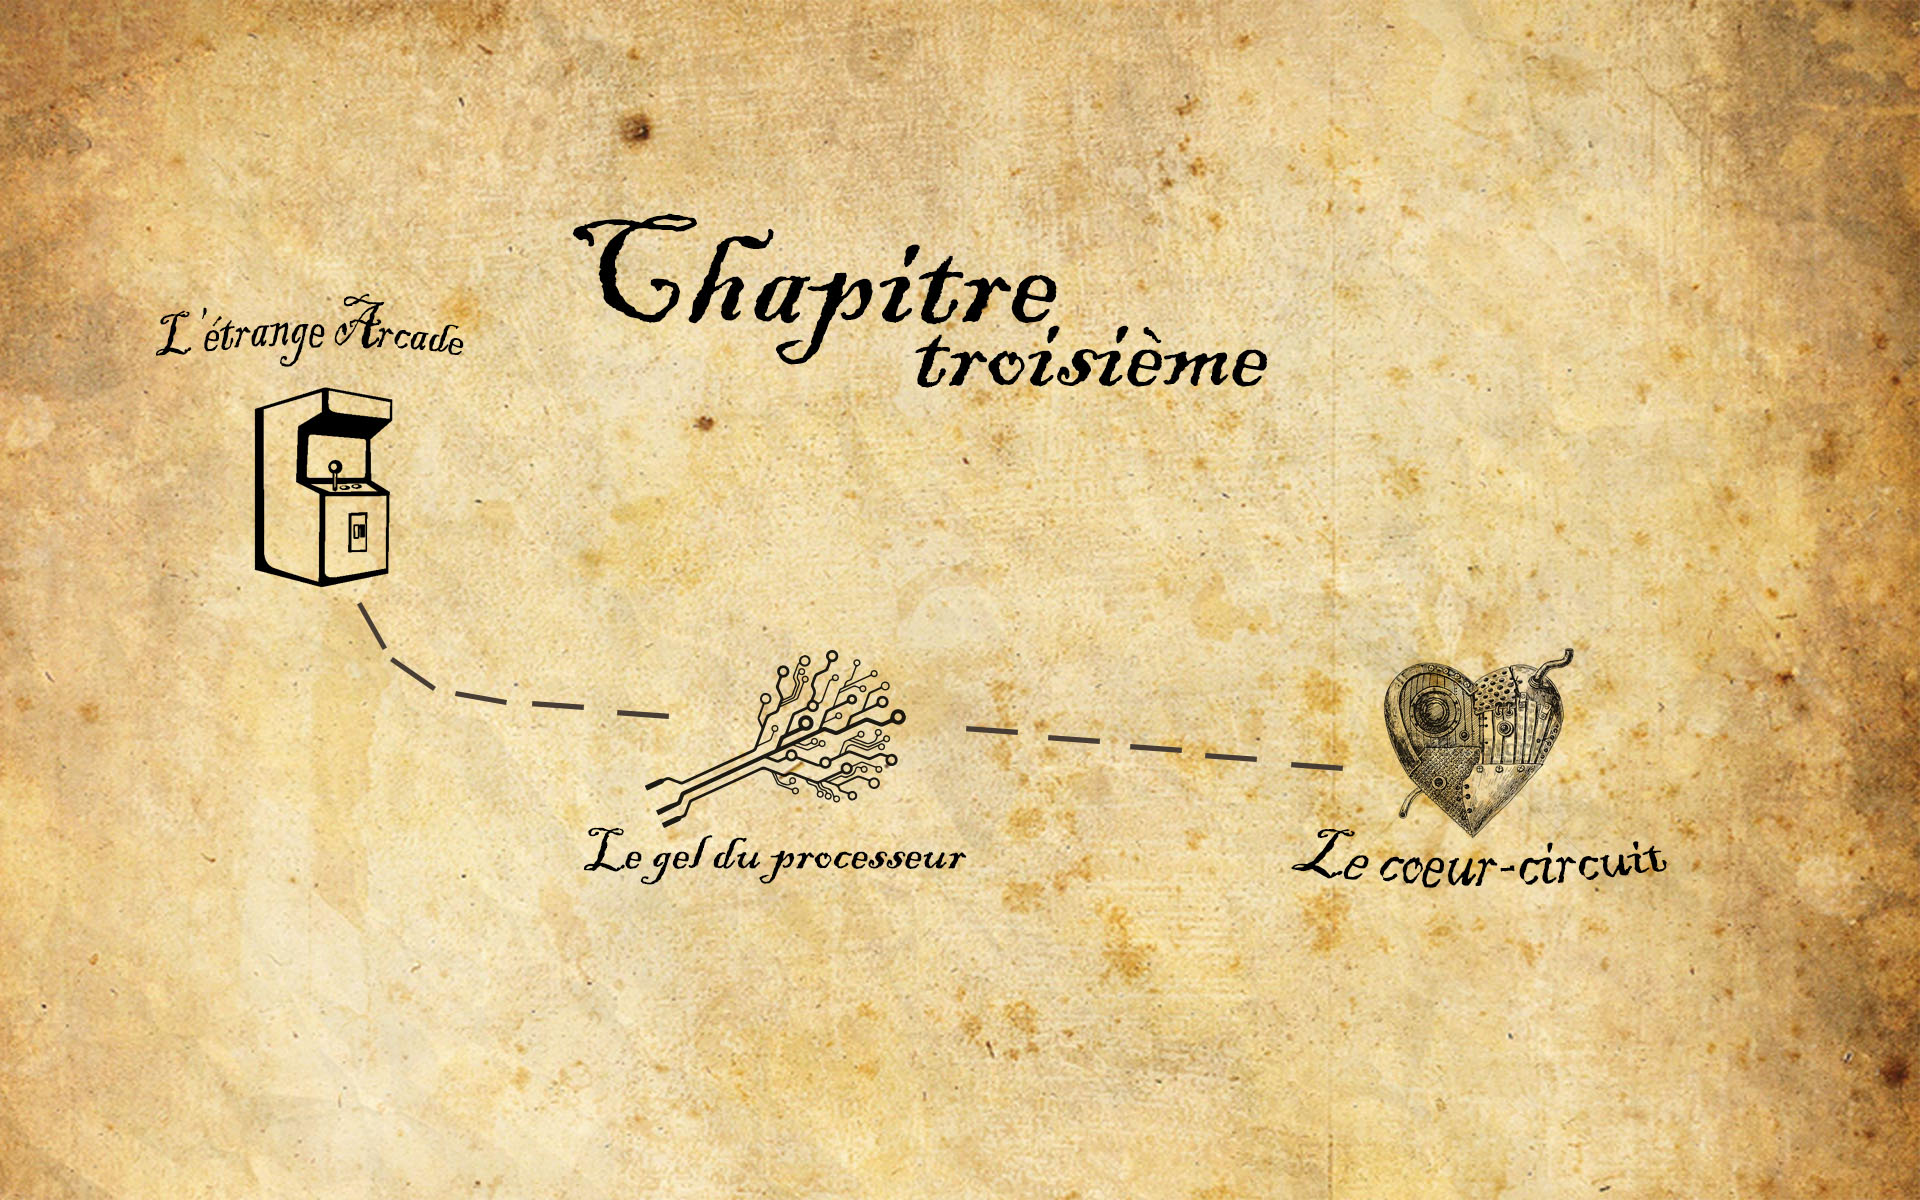 Chapitre
troisième
L'étrange Arcade
Le gel du processeur
Le coeur-circuit